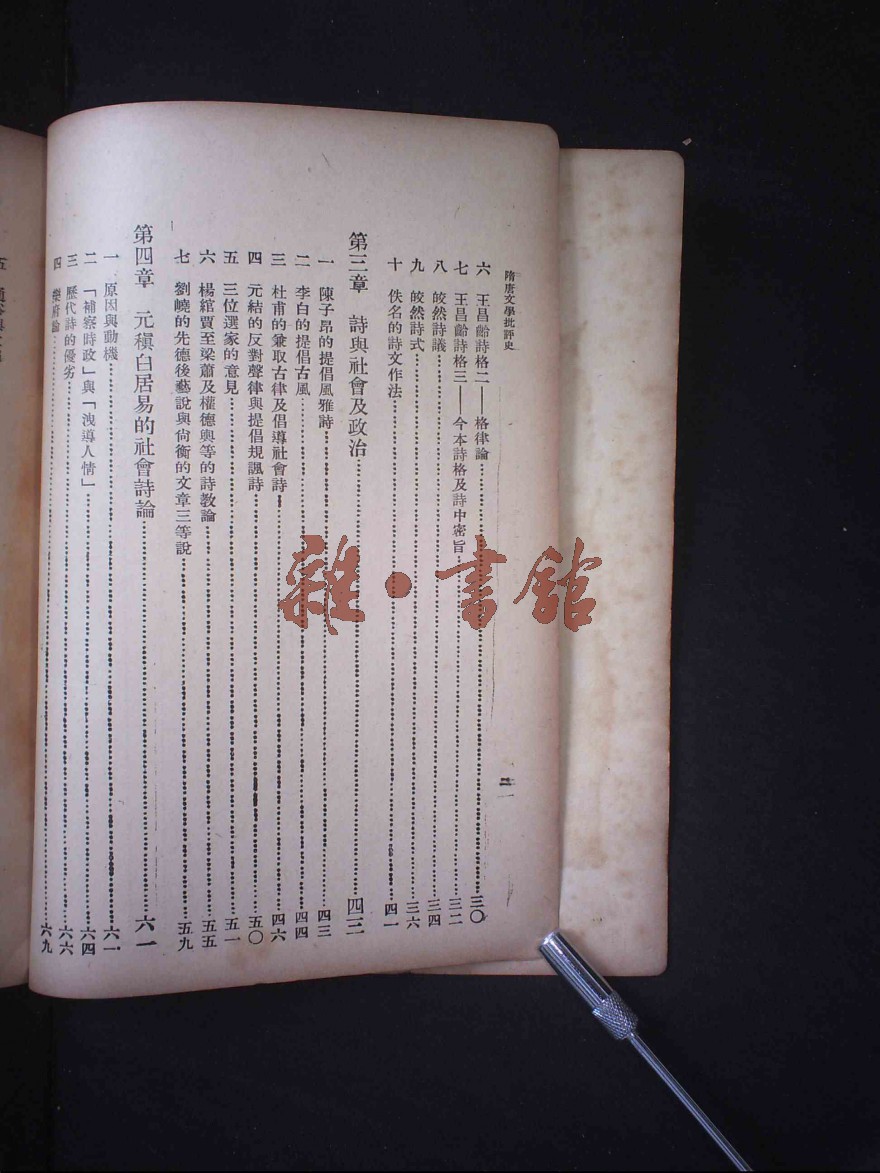 隋唐文學批評史
二
六 王昌齡詩格二——格律論……三〇
七 王昌齡詩格三——今本詩格及詩中密旨……三二
八 皎然詩議……三四
九 皎然詩式……三六
十 佚名的詩文作法……四一
第三章 詩與社會及政治……四三
一 陳子昂的提倡風雅詩……四三
二 李白的提倡古風……四四
三 杜甫的兼取古律及倡導社會詩……四六
四 元結的反對聲律與提倡規諷詩……五〇
五 三位選家的意見……五一
六 楊綰賈至梁肅及權德輿等的詩教論……五五
七 劉嶢的先德後藝說與尙衡的文章三等說……五九
第四章 元稹白居易的社會詩論……六一
一 原因與動機……六一
二 「補察時政」與「洩導人情」……六四
三 歷代詩的優劣……六六
四 樂府論……六九
雜·書館